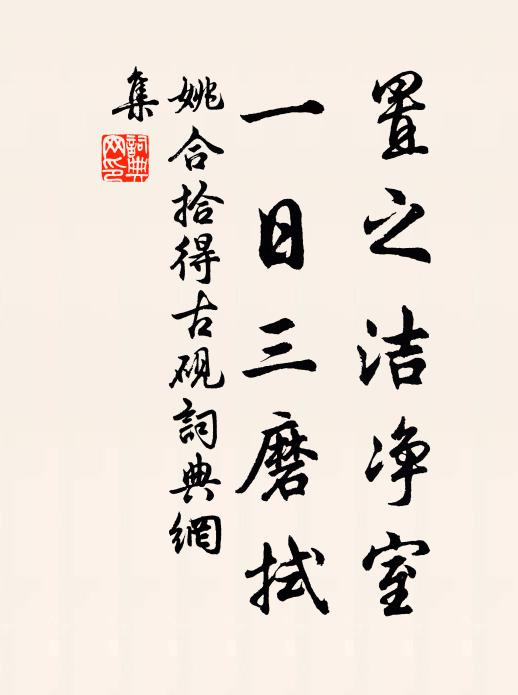 置之洁净室
一日三磨拭
姚合拾得古砚詞典網
集
詞典
网印